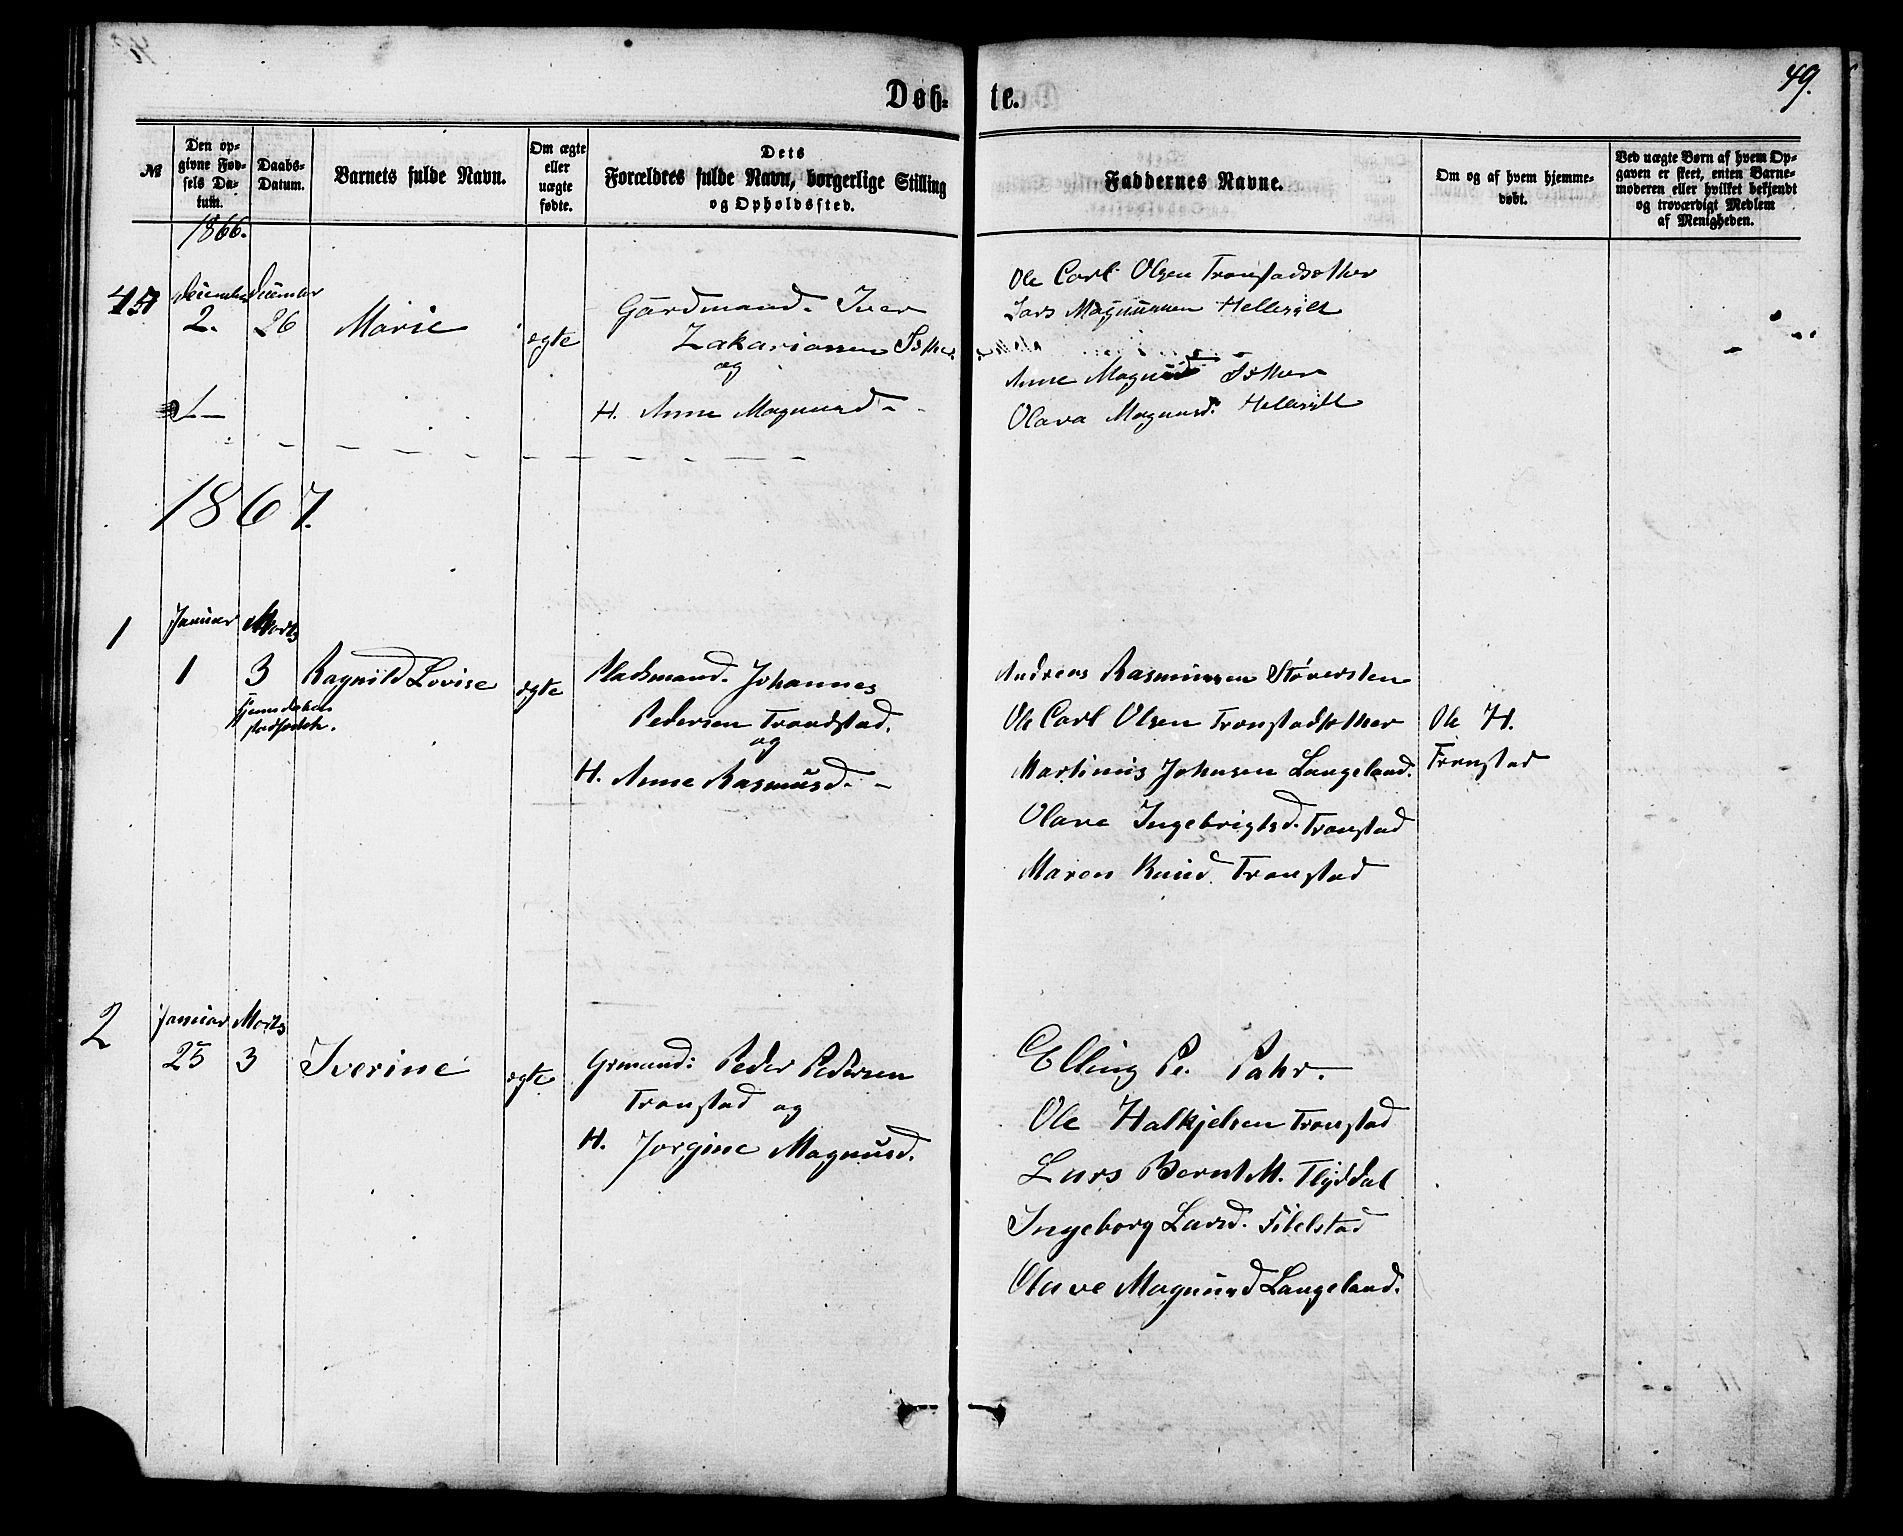 Døb- te.
49.
№
Den opgivne Fødsels Datum.
Daabs-Datum.
Barnets fulde Navn.
Om ægte eller uægte fødte.
Dets Forældres fulde Navn, borgerlige Stilling og Opholdssted.
Faddernes Navne.
Om og af hvem hjemmedøbt.
Ved uægte Børn af hvem Opgaven er skeet, enten Barnemoderen eller hvilket bekjendt og troværdigt Medlem af Menigheden.
1866.
December December
2. 26 Marie ægte
Gaardmand. Iver
Zakariassen
og
H. Anne Magnusd.
Ole Carl Olsen Tronstadsæther
Lars Magnussen Hellesylt
Anne Magnusd Sæther
Olava Magnusd. Hellesylt
1867.
1
Januar Marts
1 3 Ragnild Lovise ægte
hjemmedøben stadfæstet.
Pladsmand. Johannes
Pedersen Trondstad.
og
H. Anne Rasmusd.
Andreas Rasmussen Støversten
Ole Carl Olsen Tronstadsæther
Martinus Johnsen Langeland.
Olave Ingebrigtsd. Tronstad
Maren Knud. Tronstad
Ole H.
Tronstad
2
Januar Marts
25 3 Iverine ægte
Grmand: Peder Pedersen
Tronstad og
H. Jorgine Magnusd.
Elling Pe. Pahr.
Ole Halkjelsen Tronstad
Lars Bernt M. Flyddal
Ingeborg Larsd. Fibelstad
Olave Magnusd Langeland.